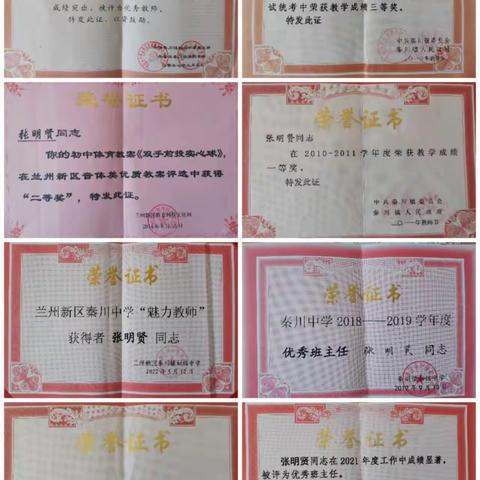 成绩突出，被评为优秀教师。
特发此证，以资鼓励。
试统考中荣获教学成绩三等奖。
特发此证
中共秦川镇委员会
秦川镇人民政府
荣誉证书
张明贤同志
你的初中体育教案《双手前投实心球》，
在兰州新区音体美优质教案评选中获得
“二等奖”，特发此证。
荣誉证书
张明贤同志
在2010-2011学年度荣获教学成绩
一等奖。
特发此证
中共秦川镇委员会
秦川镇人民政府
二〇一一年教师节
荣誉证书
兰州新区秦川中学“魅力教师”
获得者 张明贤 同志
荣誉证书
秦川中学2018——2019学年度
优秀班主任 张明贤 同志
荣誉证书
荣誉证书
张明贤同志在2021年度工作中成绩显著，
被评为优秀班主任。